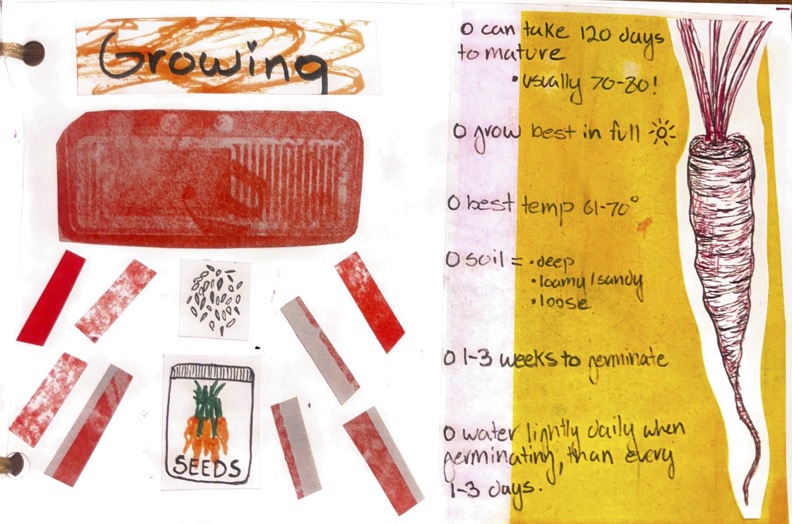 Growing
SEEDS
O can take 120 days
to mature
• usually 70-80!
O grow best in full ☼
O best temp 61-70°
O soil = • deep
• loamy/sandy
• loose
O 1-3 weeks to germinate
O water lightly daily when
germinating, than every
1-3 days.